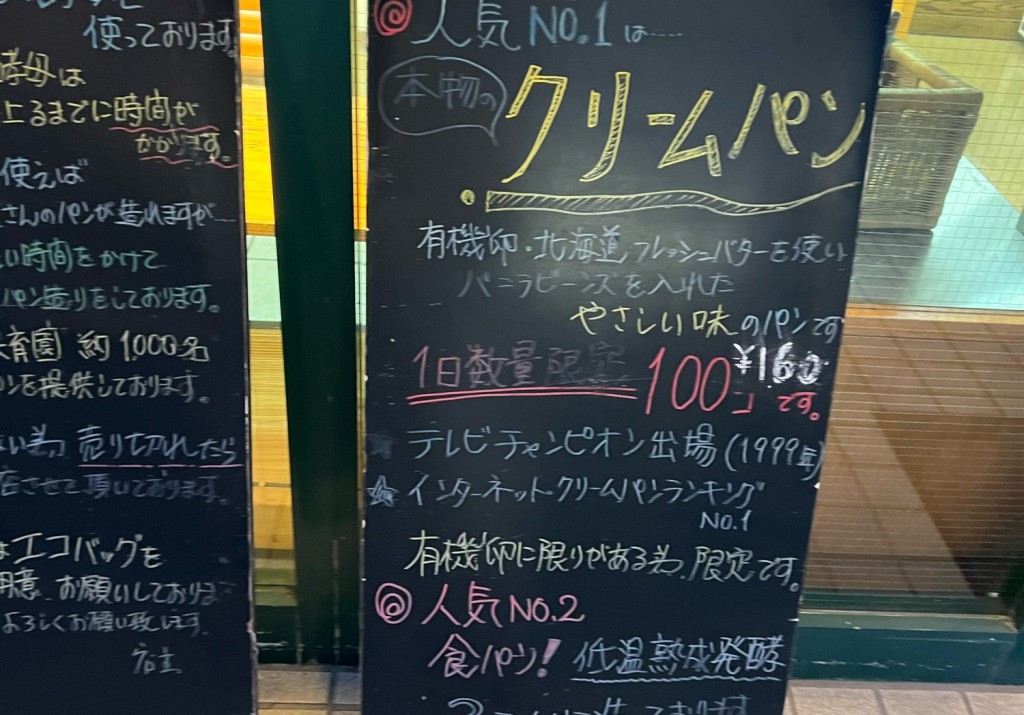 使っております。
酵母は
上るまでに時間が
かかります。
使えば
さんのパンが造れますが
い時間をかけて
パン造りをしております。
育園 約1,000名
ンを提供しております。
ない為、売り切れたら
店させて頂いております。
はエコバッグを
用意、お願いしておりま
よろしくお願い致します。
店主
◎人気NO.1は……
本物の
クリームパン
有機卵・北海道フレッシュバターを使い
バニラビーンズを入れた
やさしい味のパンです
¥160
1日数量限定100コです。
テレビチャンピオン出場(1999年)
☆インターネットクリームパンランキング
NO.1
有機卵に限りがある為、限定です。
◎人気NO.2
食パン! 低温熟成発酵